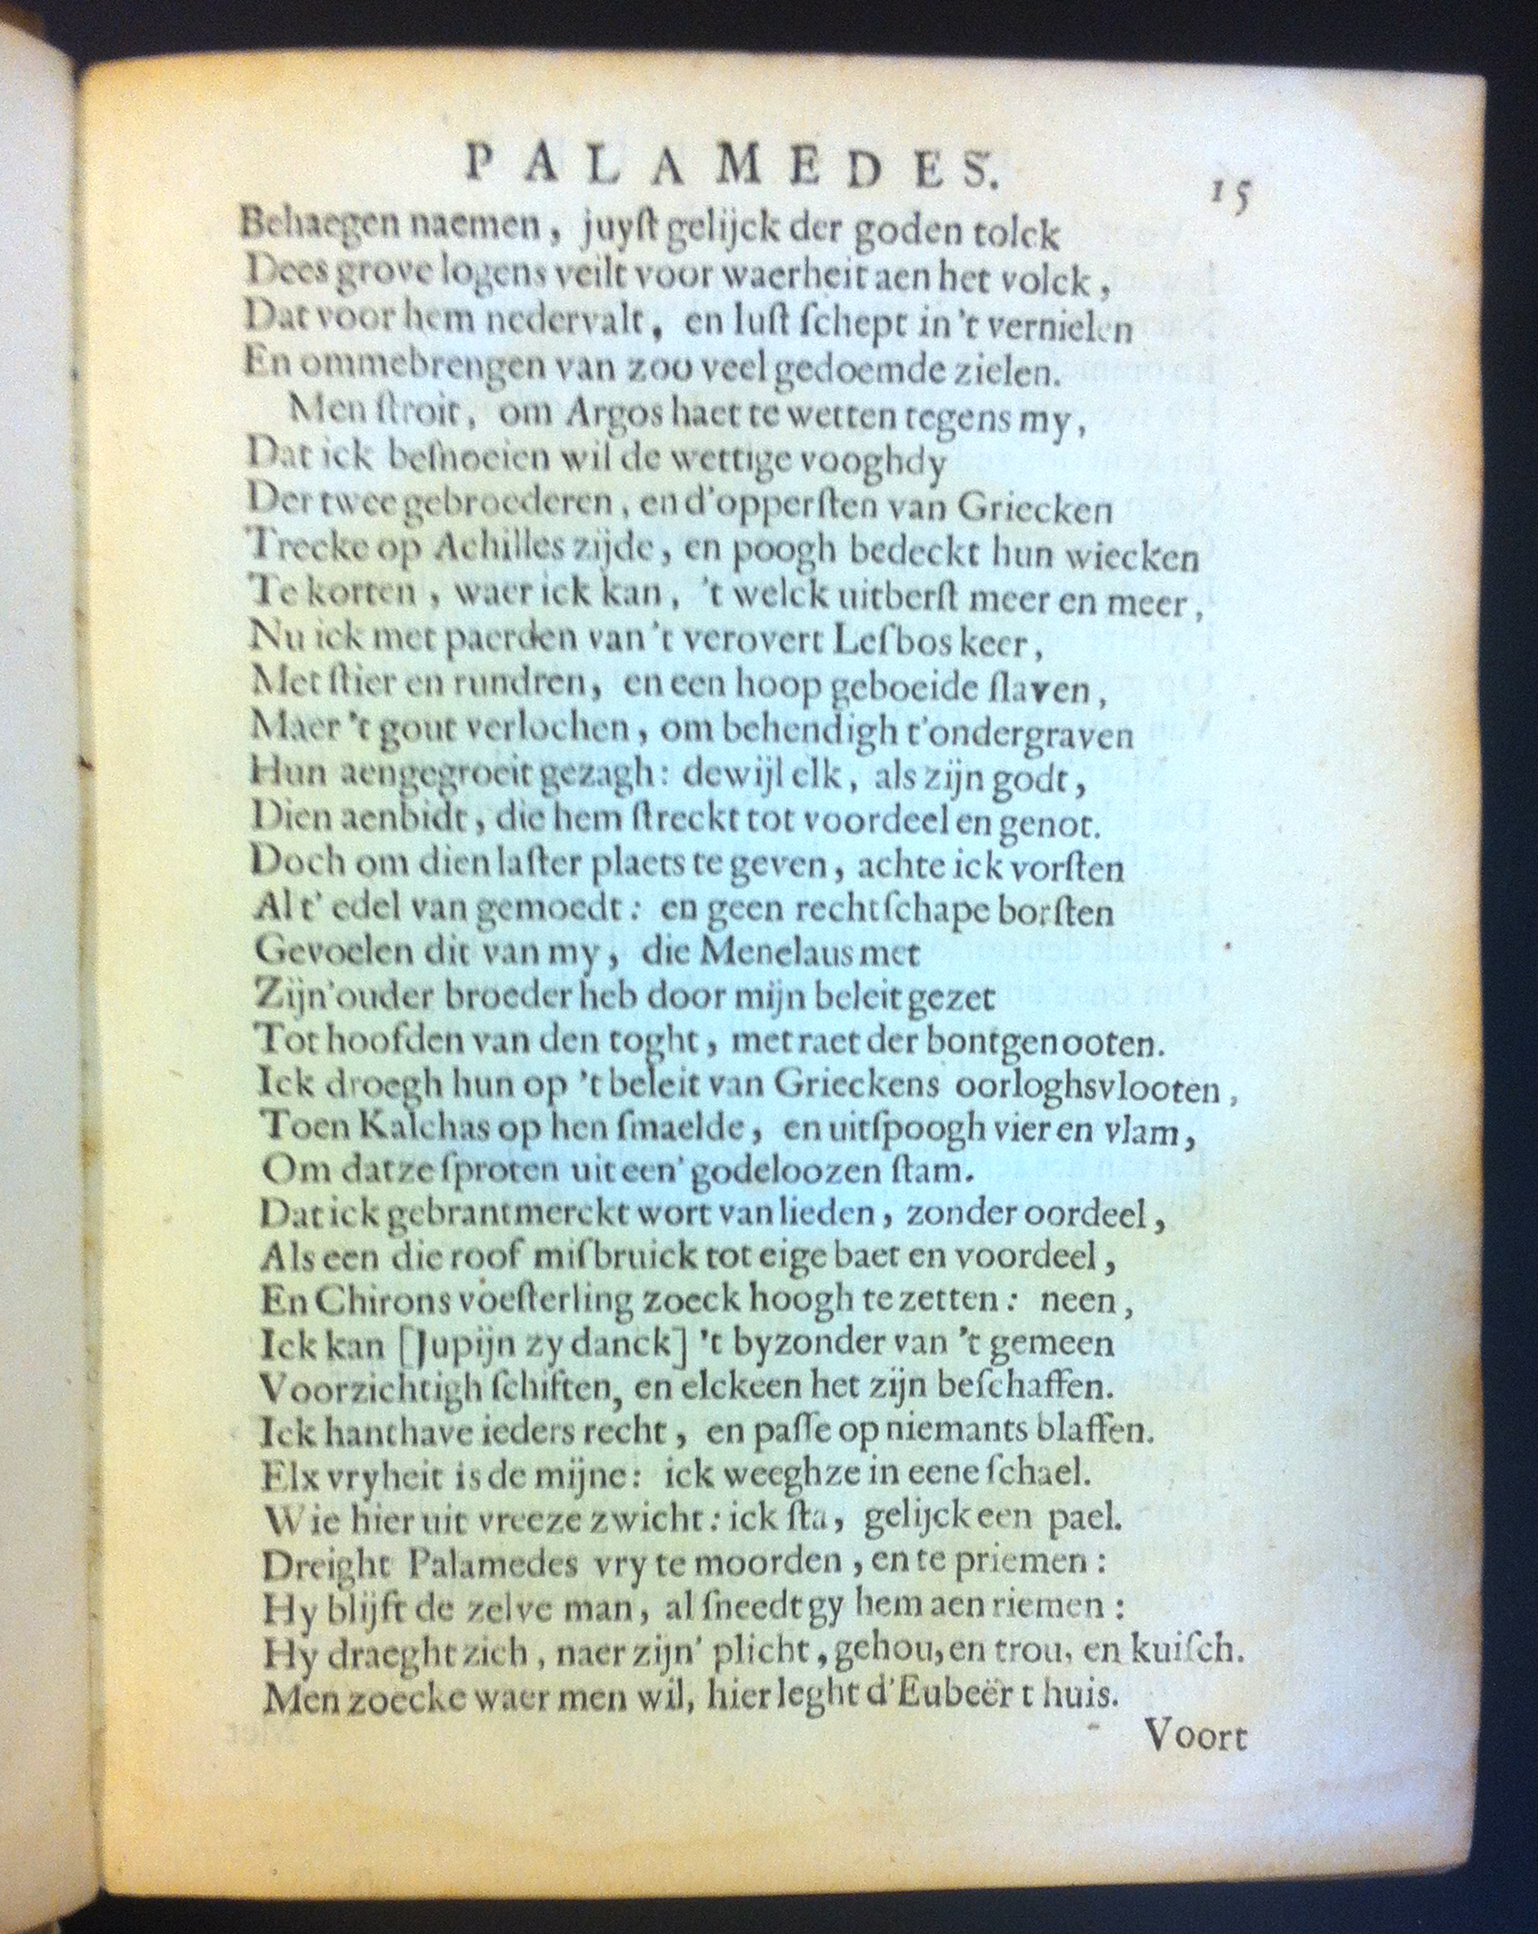 PALAMEDES. 15
Behaegen naemen, juyſt gelijck der goden tolck
Dees grove logens veilt voor waerheit aen het volck,
Dat voor hem nedervalt, en luſt ſchept in 't vernielen
En ommebrengen van zoo veel gedoemde zielen.
Men ſtroit, om Argos haet te wetten tegens my,
Dat ick beſnoeien wil de wettige vooghdy
Der twee gebroederen, en d'opperſten van Griecken
Trecke op Achilles zijde, en poogh bedeckt hun wiecken
Te korten, waer ick kan, 't welck uitberſt meer en meer,
Nu ick met paerden van 't verovert Leſbos keer,
Met ſtier en rundren, en een hoop geboeide ſlaven,
Maer 't gout verlochen, om behendigh t'ondergraven
Hun aengegroeit gezagh: dewijl elk, als zijn godt,
Dien aenbidt, die hem ſtreckt tot voordeel en genot.
Doch om dien laſter plaets te geven, achte ick vorſten
Al t' edel van gemoedt: en geen rechtſchape borſten
Gevoelen dit van my, die Menelaus met
Zijn'ouder broeder heb door mijn beleit gezet
Tot hoofden van den toght, met raet der bontgenooten.
Ick droegh hun op 't beleit van Grieckens oorloghsvlooten,
Toen Kalchas op hen ſmaelde, en uitſpoogh vier en vlam,
Om datze ſproten uit een' godeloozen ſtam.
Dat ick gebrantmerckt wort van lieden, zonder oordeel,
Als een die roof miſbruick tot eige baet en voordeel,
En Chirons voeſterling zoeck hoogh te zetten: neen,
Ick kan [Jupijn zy danck] 't byzonder van 't gemeen
Voorzichtigh ſchiften, en elckeen het zijn beſchaffen.
Ick hanthave ieders recht, en paſſe op niemants blaffen.
Elx vryheit is de mijne: ick weeghze in eene ſchael.
Wie hier uit vreeze zwicht: ick ſta, gelijck een pael.
Dreight Palamedes vry te moorden, en te priemen:
Hy blijft de zelve man, al ſneedt gy hem aen riemen:
Hy draeght zich, naer zijn' plicht, gehou, en trou, en kuiſch.
Men zoecke waer men wil, hier leght d'Eubeër t huis.
Voort